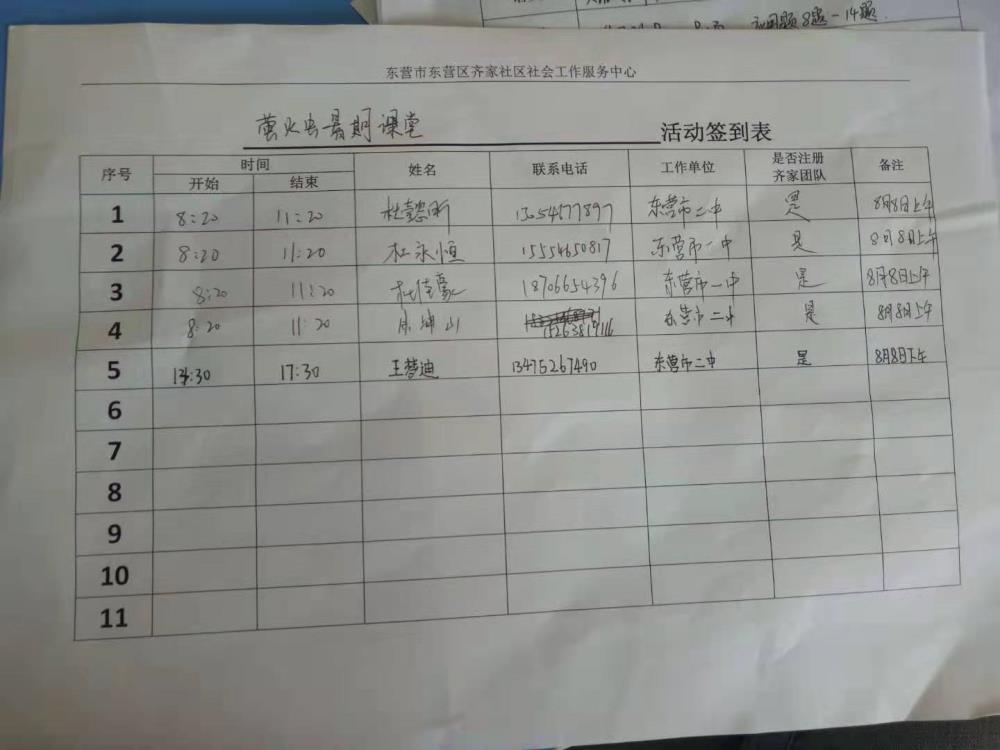 应用题8题-14题
东营市东营区齐家社区社会工作服务中心
萤火虫暑期课堂 活动签到表
序号 时间 姓名 联系电话 工作单位 是否注册齐家团队 备注
开始 结束
1 8:20 11:20 杜 东营市二中 是 8月8日上午
2 8:20 11:20 杜永恒 15554650817 东营市一中 是 8月8日上午
3 8:20 11:20 杜佳豪 18706654396 东营市一中 是 8月8日上午
4 8:20 11:20 坤山 东营市二中 是 8月8日上午
5 14:30 17:30 王梦迪 13475267490 东营市二中 是 8月8日下午
6
7
8
9
10
11